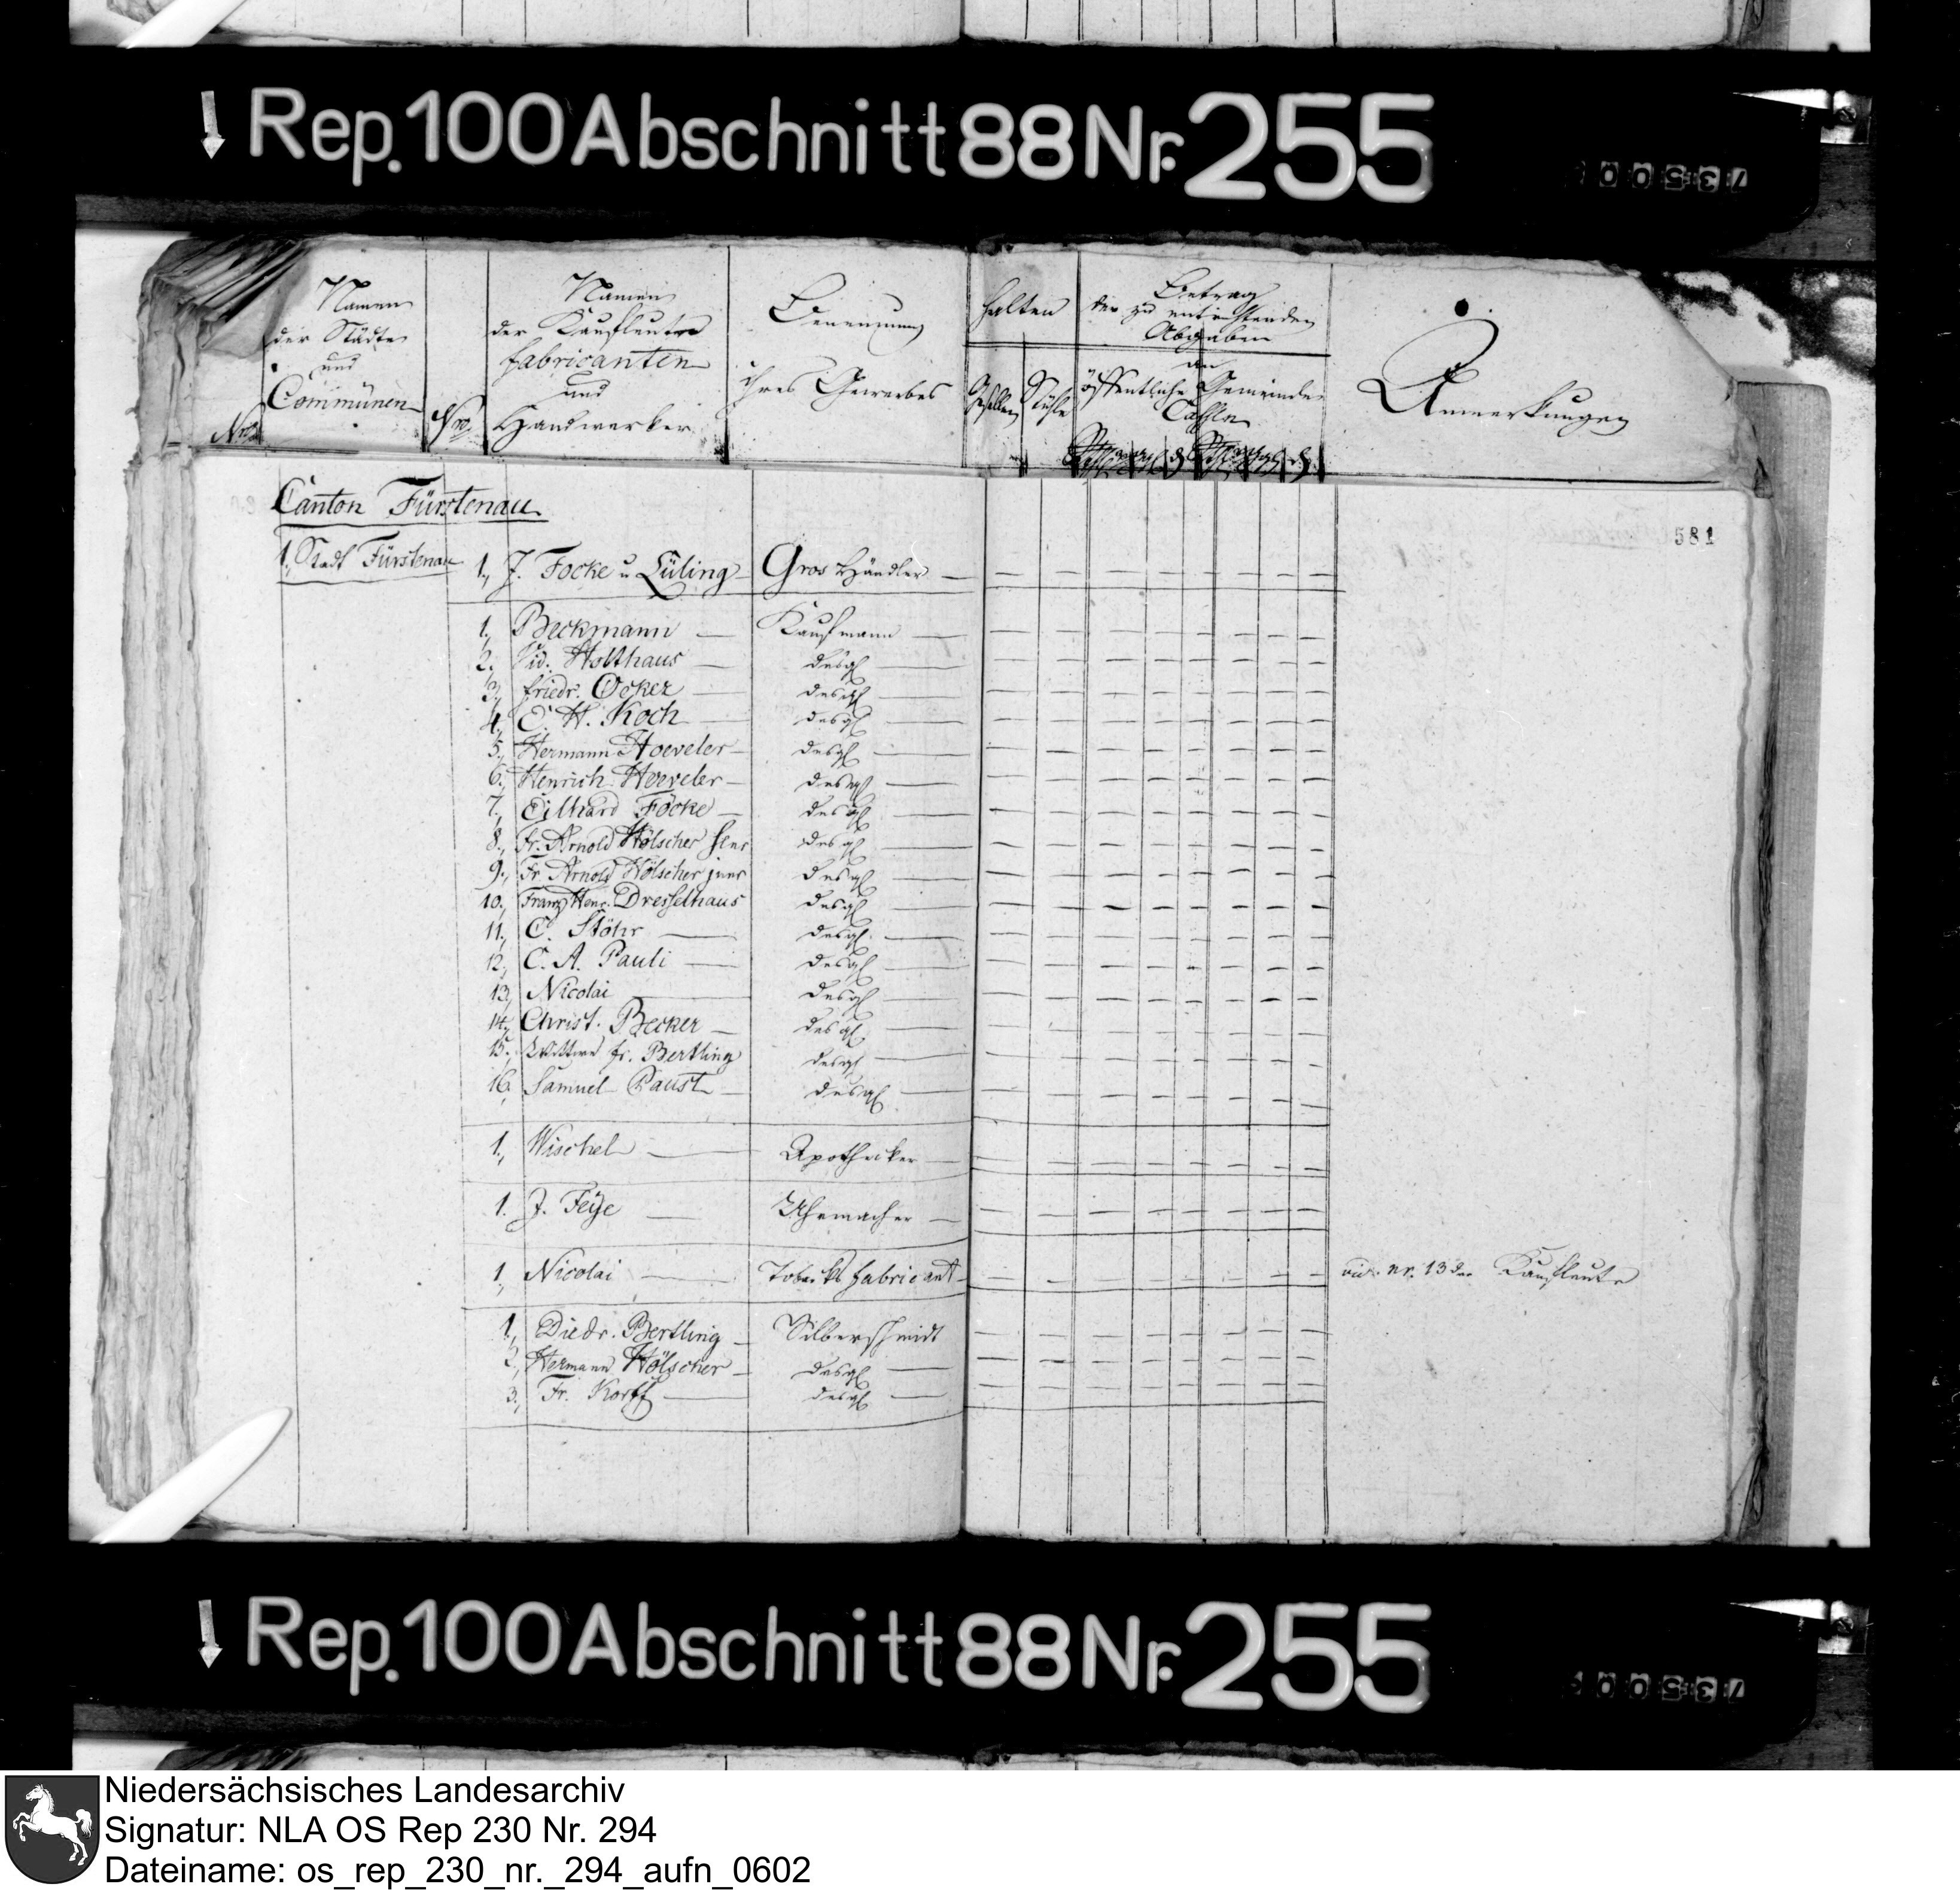 Rep. 100 Abschnitt 88 Nr. 255
Nro
Namen
der Städte
und
Communen
Nro
Namen
der Kaufleute
fabricanten
und
Handwerker
Benennung
ihres Gewerbes
halten
Gesellen
Stühle
Betrag
der zu entrichtenden
Abgaben
an
öffentliche Gemeinde
Cassen
Anmerkungen
581
Canton Fürstenau
1, Stadt Fürstenau 1, J. Focke u Lüling Gros Händler
1, Beckmann Kaufmann
2. Vid. Holthaus desgl
3, friedr. Ocker desgl
4, C. H. Koch desgl
5, Hermann Hoeveler desgl
6, Henrich Hoeveler desgl
7, Eilhard Focke desgl
8, Fr. Arnold Hölscher senr desgl
9, Fr. Arnold Hölscher junr desgl
10, Franz Henr. Dresselhaus desgl
11, C. Stöhr desgl
12, C. A. Pauli desgl
13, Nicolai desgl
14, Christ. Becker desgl
15, Wittwe fr. Bertling desgl
16, Samuel Paust desgl
1, Wischel Apotheker
1. J. Feÿe Uhrmacher
1, Nicolai Tobacks fabricant vid. nr. 13 der Kaufleute
1, Diedr. Bertling Silberschmidt
2, Hermann Hölscher desgl
3, Fr. Korff desgl
Rep. 100 Abschnitt 88 Nr. 255
Niedersächsisches Landesarchiv
Signatur: NLA OS Rep 230 Nr. 294
Dateiname: os_rep_230_nr._294_aufn_0602